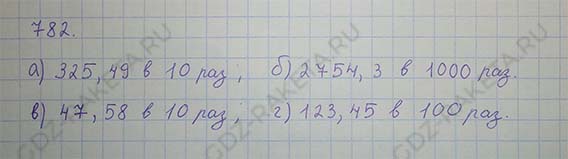 782.
а) 325,49 в 10 раз; б) 2754,3 в 1000 раз.
в) 47,58 в 10 раз; г) 123,45 в 100 раз.
GDZ-RAKETA.RU